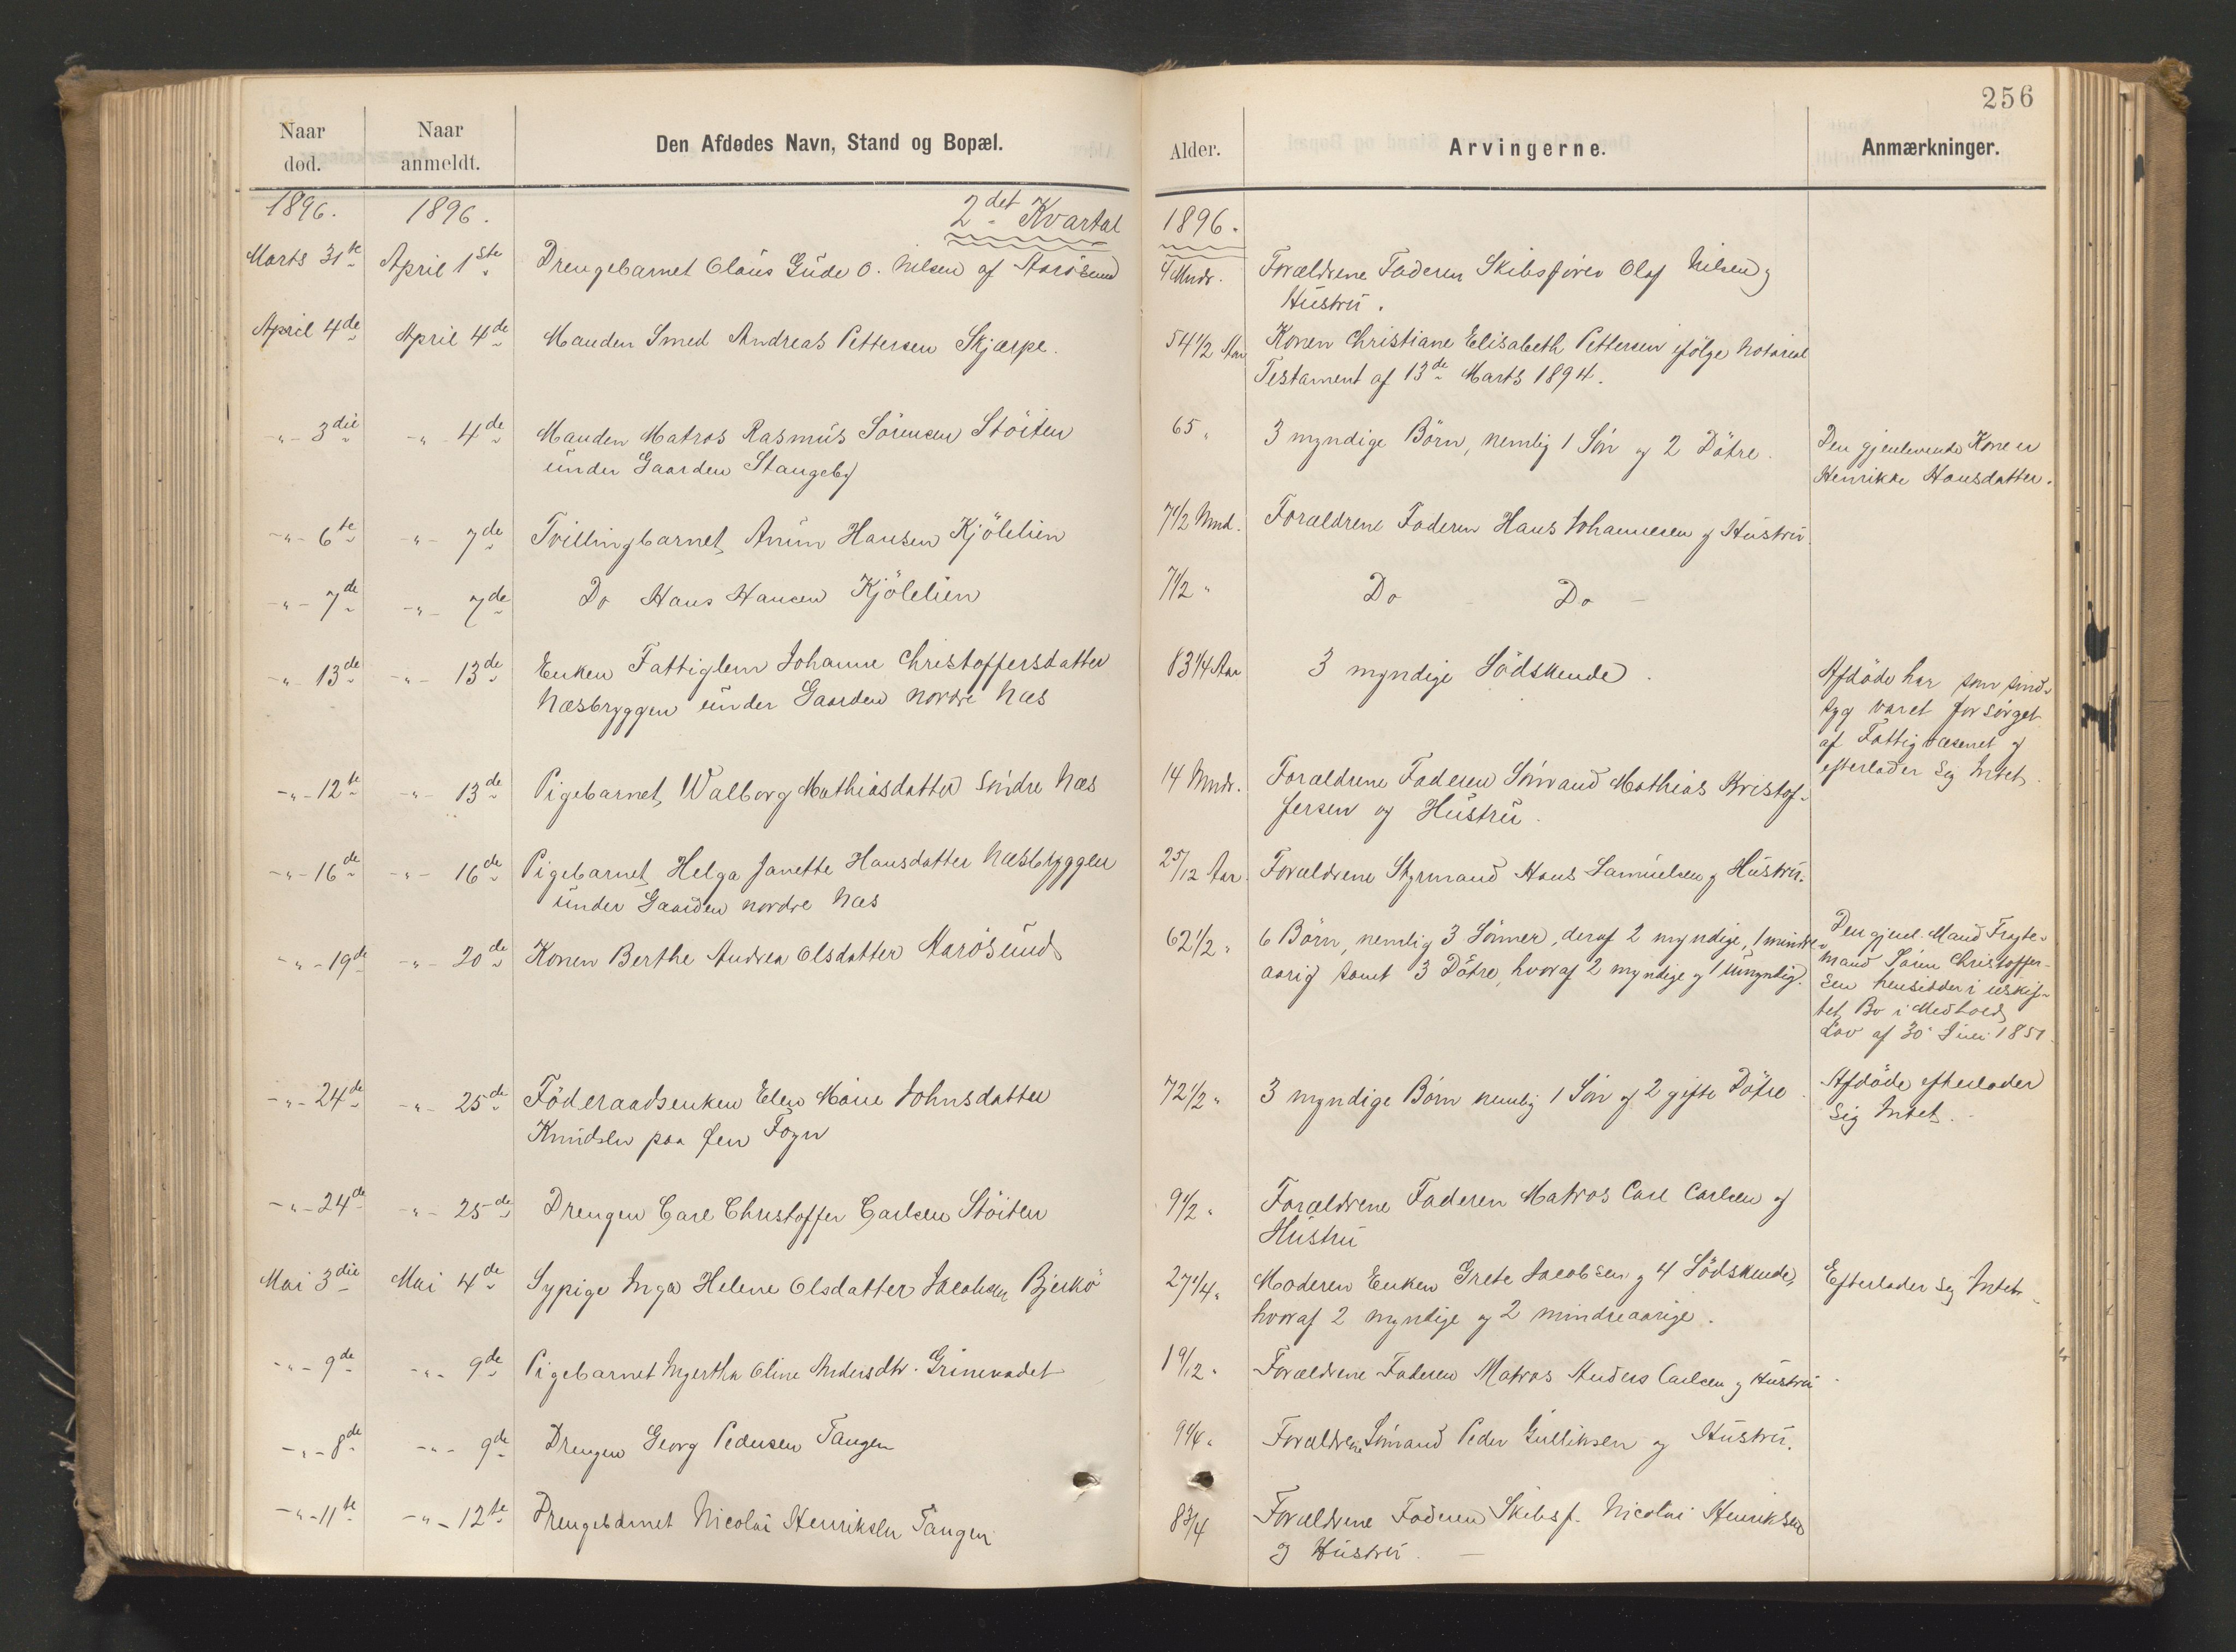 256
Naar død. Naar anmeldt. Den Afdødes Navn, Stand og Bopæl. Alder. Arvingerne. Anmærkninger.
1896. 1896. 2det Kvartal 1896.
Marts 31te April 1ste Drengebarnet Claus Gude O. Nilsen af Aarösund 4 Mndr. Forældrene Faderen Skibsfører Olaf Nilsen og
Hustru.
April 4de April 4de Manden Smed Andreas Pettersen Skjærpe. 54 1/2 Aar Konen Christiane Elisabeth Pettersen ifölge Notarial
Testament af 13de Marts 1894.
-"- 3die -"- 4de Manden Matros Rasmus Sörensen Stöiten 65 " 3 myndige Börn, nemlig 1 Sön og 2 Dötre. Den gjenlevende Kone er
under Gaarden Stangeby Henrikke Hansdatter.
-"- 6te -"- 7de Tvillingbarnet Anun Hansen Kjölelien 7 1/2 Mnd. Forældrene Faderen Hans Johannesen og Hustru.
-"- 7de -"- 7de Do Hans Hansen Kjölelien 7 1/2 " Do - Do -
-"- 13de -"- 13de Enken Fattiglem Johanne Christoffersdatter 83 1/4 Aar 3 myndige Södskende. Afdöde har som sind-
Næsbryggen under Gaarden nordre Næs syg varet forsörget
af Fattigvæsenet og
efterlader sig Intet.
-"- 12te -"- 13de Pigebarnet Walborg Mathiasdatter Söndre Næs 14 Mndr. Forældrene Faderen Sömand Mathias Kristof-
fersen og Hustru.
-"- 16de -"- 16de Pigebarnet Helga Janette Hansdatter Næsbryggen 2 5/12 Aar Forældrene Styrmand Hans Samuelsen og Hustru.
under Gaarden nordre Næs
-"- 19de -"- 20de Konen Berthe Andrea Olsdatter Aarösund 62 1/2 " 6 Börn, nemlig 3 Sönner, deraf 2 myndige, 1 mindre- Den gjenl. Mand Fragte-
aarig samt 3 Dötre, hvoraf 2 myndige og 1 Umyndig. mand Sören Christoffer-
sen hensidder i uskif-
tet Bo i Medhold
Lov af 30 Juli 1851.
-"- 24de -"- 25de Föderaadsenken Elen Marie Johnsdatter 72 1/2 " 3 myndige Börn nemlig 1 Sön og 2 gifte Dötre. Afdöde efterlader
Knudsen paa Fögn sig Intet.
-"- 24de -"- 25de Drengen Carl Christoffer Carlsen Stöiten 9 1/2 " Forældrene Faderen Matros Carl Carlsen og
Hustru
Mai 3die Mai 4de Sypige Inga Helene Olsdatter Jacobsen Bjerkö 27 1/4 " Moderen Enken Grete Jacobsen og 4 Södskende, Efterlader sig Intet.
hvoraf 2 myndige og 2 mindreaarige.
-"- 9de -"- 9de Pigebarnet Ingertha Oline Andersdtr. 1 9/12 " Forældrene Faderen Matros Anders Carlsen og Hustru.
-"- 8de -"- 9de Drengen Georg Pedersen Tangen Forældrene Sömand Peder Gulliksen og Hustru.
-"- 11te -"- 12te Drengebarnet Nicolai Henriksen Tangen 8 3/4 Forældrene Faderen Skibsf. Nicolai Henriksen
og Hustru. -